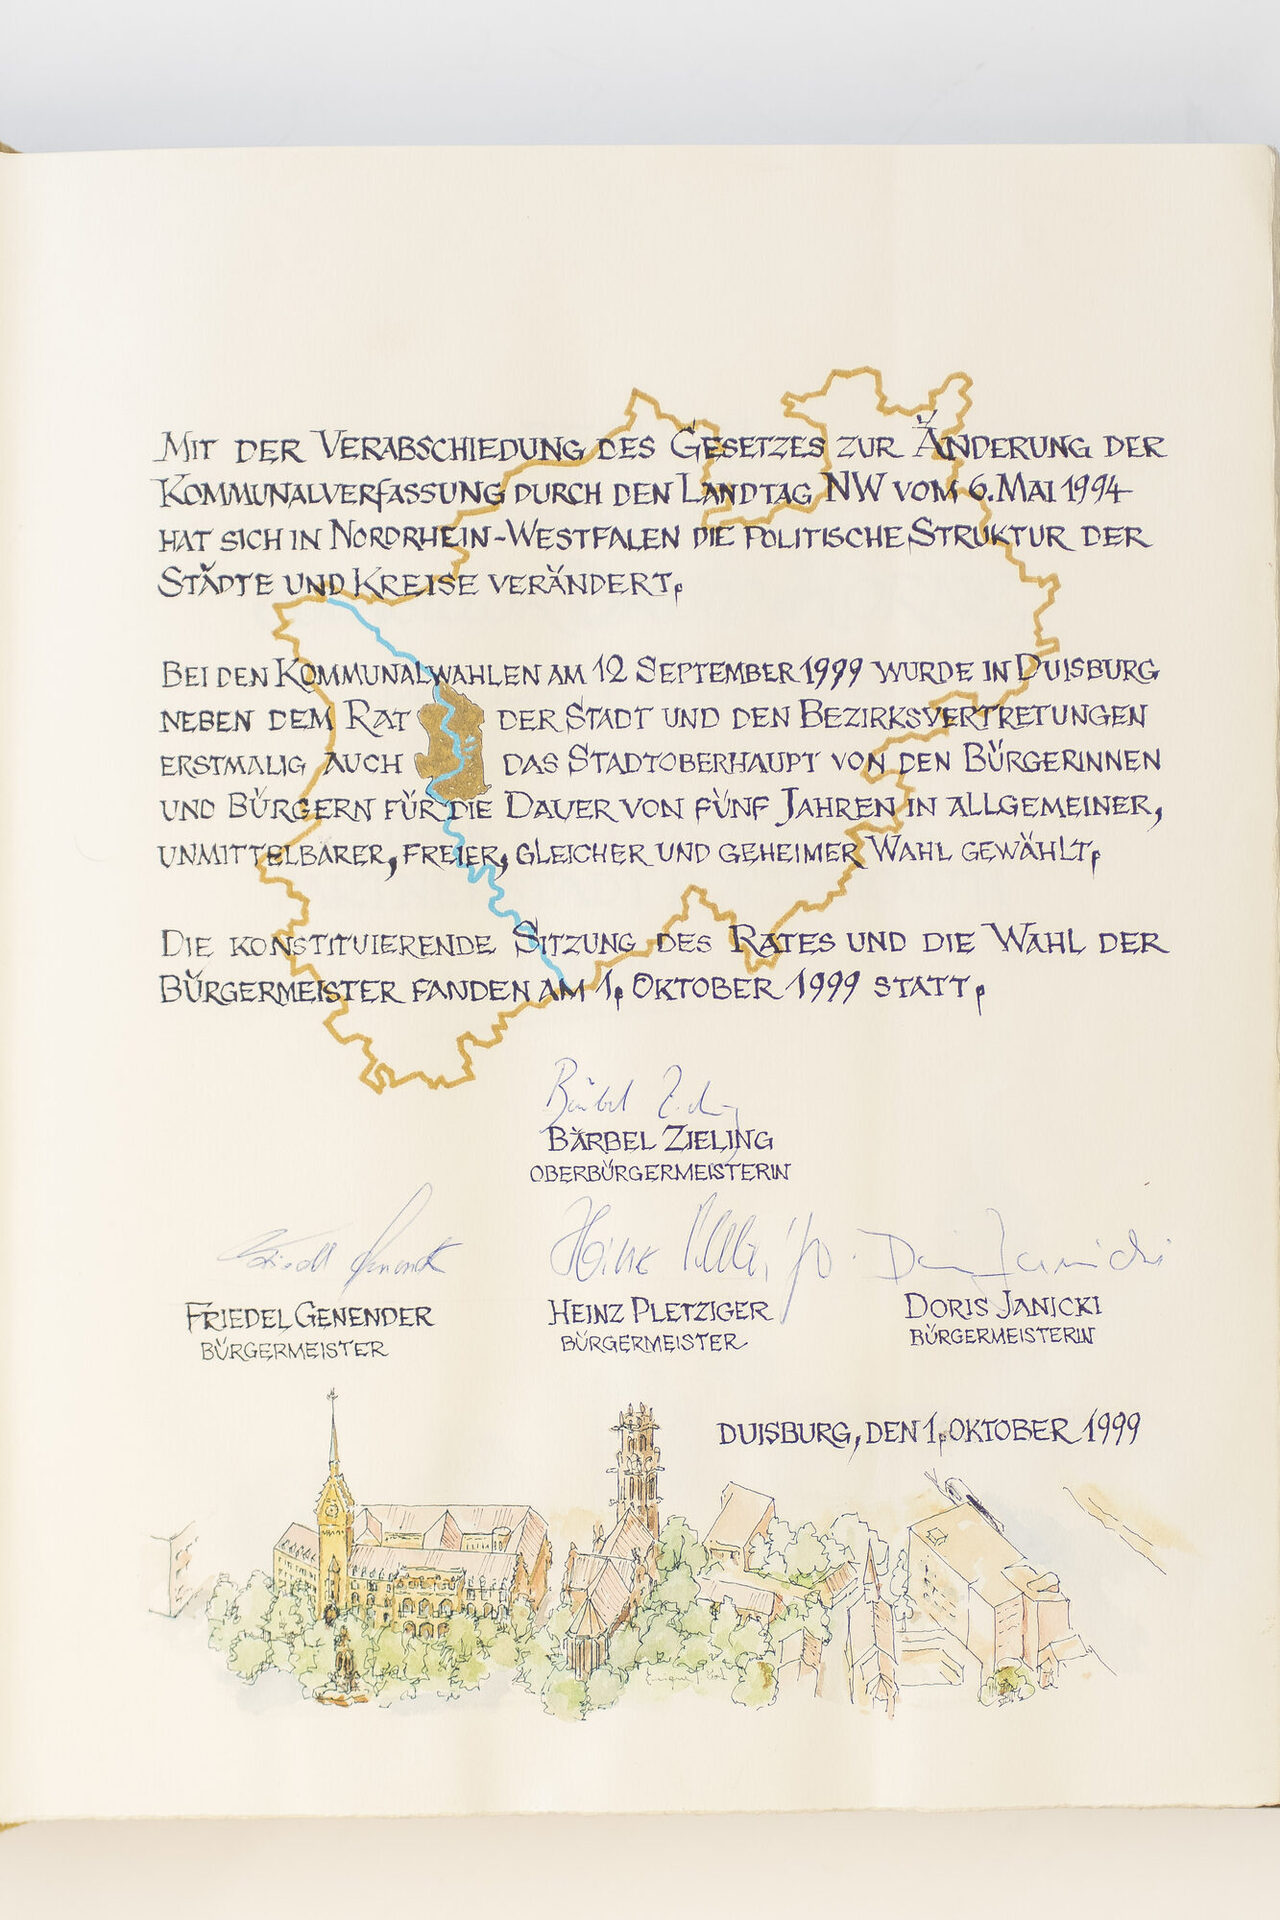 Mit der Verabschiedung des Gesetzes zur Änderung der
Kommunalverfassung durch den Landtag NW vom 6. Mai 1994
hat sich in Nordrhein-Westfalen die politische Struktur der
Städte und Kreise verändert.
Bei den Kommunalwahlen am 12 September 1999 wurde in Duisburg
neben dem Rat der Stadt und den Bezirksvertretungen
erstmalig auch das Stadtoberhaupt von den Bürgerinnen
und Bürgern für die Dauer von fünf Jahren in allgemeiner,
unmittelbarer, freier, gleicher und geheimer Wahl gewählt.
Die konstituierende Sitzung des Rates und die Wahl der
Bürgermeister fanden am 1. Oktober 1999 statt.
Bärbel Zieling
Bärbel Zieling
Oberbürgermeisterin
Friedel Genender
Heinz Pletziger
Doris Janicki
Friedel Genender
Heinz Pletziger
Doris Janicki
Bürgermeister
Bürgermeister
Bürgermeisterin
Duisburg, den 1. Oktober 1999